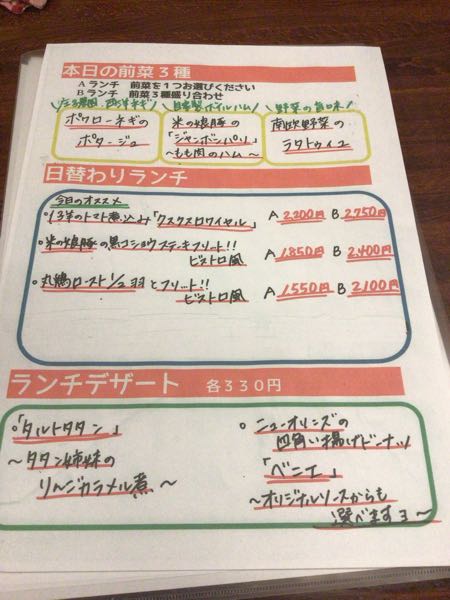 本日の前菜3種
Aランチ 前菜を1つお選びください
Bランチ 前菜3種盛り合わせ
西洋ネギ 自家製ボイルハム 野菜の旨味!
ポワローネギの
ポタージュ
米の娘豚の
「ジャンボンパリ」
~もも肉のハム~
南欧野菜の
ラタトゥイユ
日替わりランチ
今日のオススメ
○仔羊のトマト煮込み「クスクスロワイヤル」 A 2,200円 B 2,750円
○米の娘豚の黒コショウステーキフリット!! A 1,850円 B 2,400円
ビストロ風
○丸鶏ロースト1/2羽とフリット!! A 1,550円 B 2,100円
ビストロ風
ランチデザート 各330円
○「タルトタタン」
~タタン姉妹の
りんごカラメル煮~
○ニューオリンズの
四角い揚げドーナッツ
「ベニエ」
~オリジナルソースからも
選べますヨ~